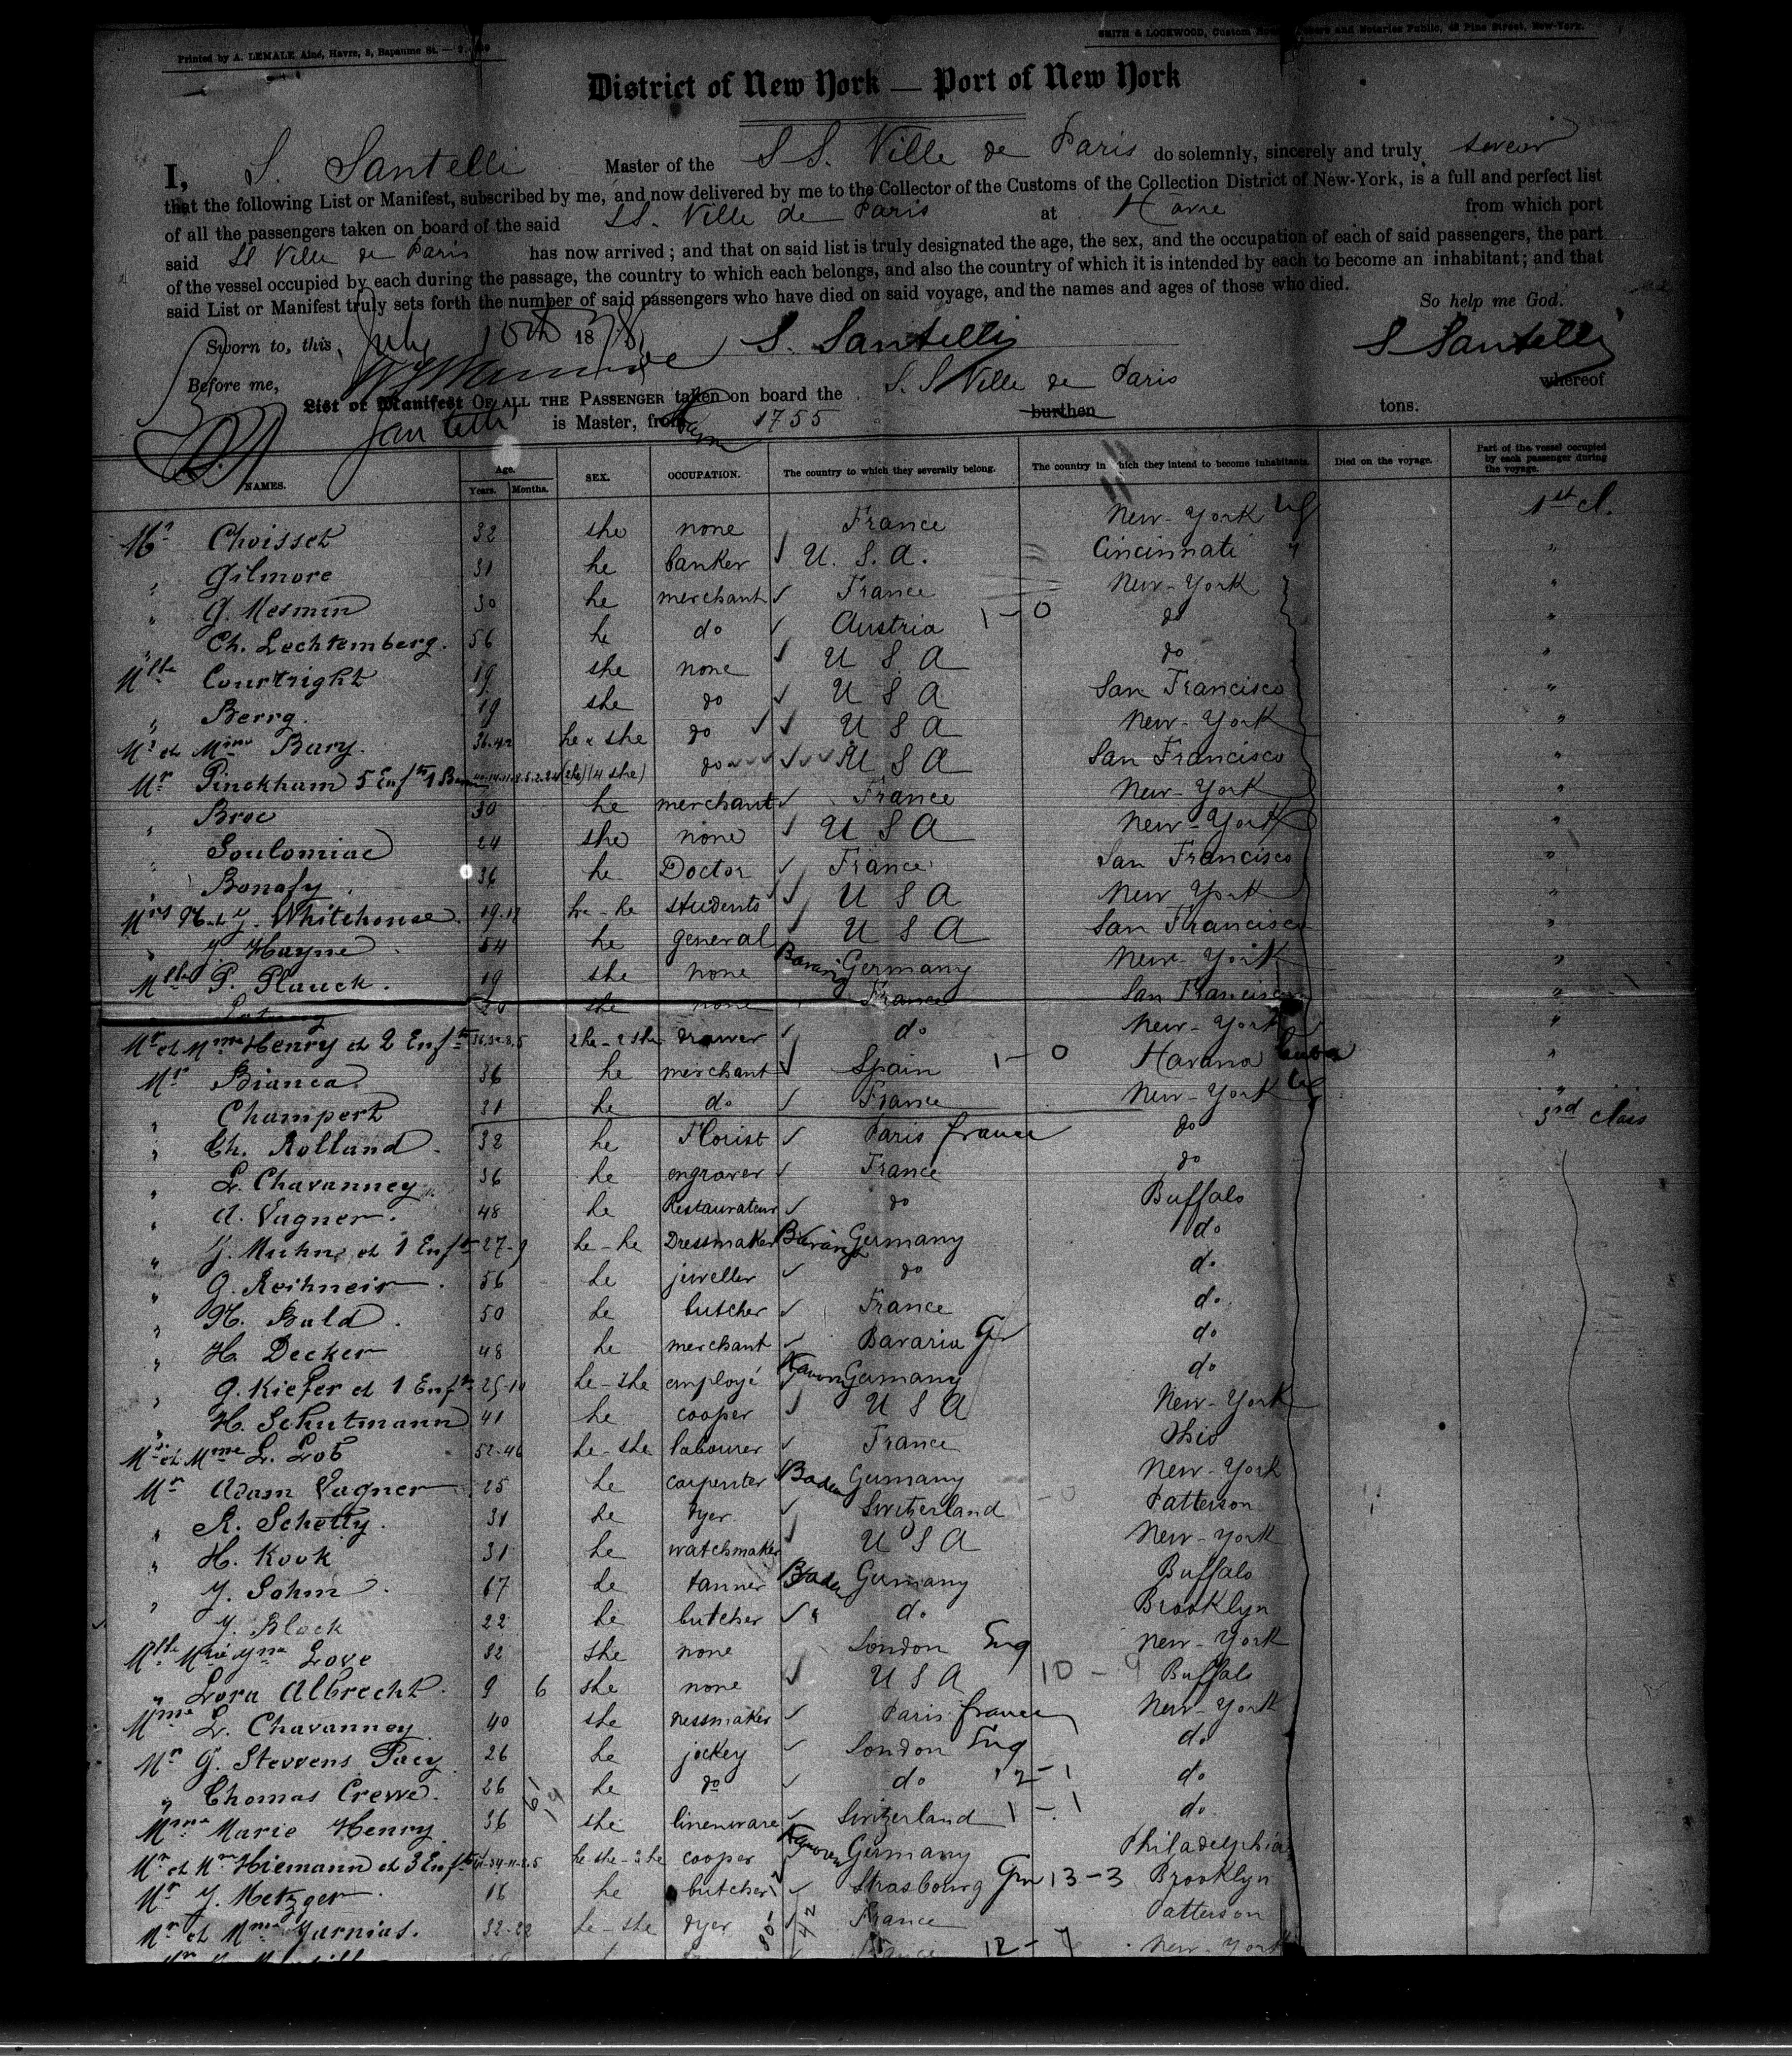 Printed by A. LEMALE Aîné, Havre, 3, Bapaume St.
SMITH & LOCKWOOD, Custom and Notaries Public, Pine Street, New-York.
District of New York — Port of New York
I, S. Santelli Master of the SS. Ville de Paris do solemnly, sincerely and truly swear
that the following List or Manifest, subscribed by me, and now delivered by me to the Collector of the Customs of the Collection District of New-York, is a full and perfect list
of all the passengers taken on board of the said SS. Ville de Paris at Havre from which port
said SS Ville de Paris has now arrived; and that on said list is truly designated the age, the sex, and the occupation of each of said passengers, the part
of the vessel occupied by each during the passage, the country to which each belongs, and also the country of which it is intended by each to become an inhabitant; and that
said List or Manifest truly sets forth the number of said passengers who have died on said voyage, and the names and ages of those who died. So help me God.
Sworn to, this July 10th 1878 S. Santelli S Santelli
Before me,
List or Manifest OF ALL THE PASSENGER taken on board the S. S Ville de Paris whereof
Santelli is Master, from Havre 1755 burthen tons.
NAMES. Age. Years. Months. SEX. OCCUPATION. The country to which they severally belong. The country in which they intend to become inhabitants. Died on the voyage. Part of the vessel occupied by each passenger during the voyage.
Choisset 32 she none France New-York US 1st cl.
" Gilmore 31 he banker U. S. A. Cincinnati "
" G. Mesmin 30 he merchant France New-York "
" Ch. Lechtemberg. 56 he do Austria 1-0 do "
Mlle Courtright 19 she none U S A do "
" Berry. 19 she do U S A San Francisco "
Mr et Mme Bary. 36-42 he & she do U S A New-York "
Mr Pinckham 5 Enfts (2 he) (4 she) do U S A San Francisco "
" Broc 30 he merchant France New-York "
" Soulomiac 24 she none U S A New-York "
" Bonafy 36 he Doctor France San Francisco "
Mrs H. et J. Whitehouse 19-18 he-he students U S A New York "
" J. Hayne 54 he general U S A San Francisco "
Mlle P. Plauck. 19 she none Bavaria Germany New-York "
20 she none France San Francisco "
Mr et Mme Henry et 2 Enfts 2 he-2 she drawer do New-York "
Mr Bianca 36 he merchant Spain 1-0 Havana Cuba "
" Champert 31 he do France New-York US "
" Ch. Rolland 32 he Florist Paris france do 3rd class
" L. Chavanney 36 he engraver France do
" A. Vagner. 48 he Restaurateur do Buffalo
" 1 Enft 27-9 he-he Dressmaker Bavaria Germany do
" G. Reihneir 56 he jeweller do do
" H. Bald. 50 he butcher France do
" H. Decker 48 he merchant Bavaria Gr do
" G. Kiefer et 1 Enft 25-10 he-she employé Germany do
" H. Schutmann 41 he cooper U S A New-York
Mr et Mme L. Lob 52-46 he-she labourer France Ohio
Mr Adam Vagner 25 he carpenter Baden Germany New-York
" R. Schetty. 31 he dyer Switzerland 1-0 Patterson
" H. Kook 31 he watchmaker U S A New-York
" J. Sohm 67 he tanner Baden Germany Buffalo
J. Block 22 he butcher do Brooklyn
Mlle Love 32 she none London Eng New-York
" Lora Albrecht. 9 6 she none U S A 10-9 Buffalo
Mme L. Chavanney 40 she dressmaker Paris france New-York
Mr G. Stevvens Pacy 26 he jockey London Eng do
" Thomas Crewe. 26 he do do 2-1 do
Mme Marie Henry 36 she linenware Switzerland 1-1 do
Mr et Mme Hiemann et 3 Enfts cooper Germany Philadelphia
Mr J. Metzger. 16 he butcher Strasbourg Gr 13-3 Brooklyn
Mr et Mme Jarnias. 32-22 he-she dyer France Patterson
France 12-7 New-York